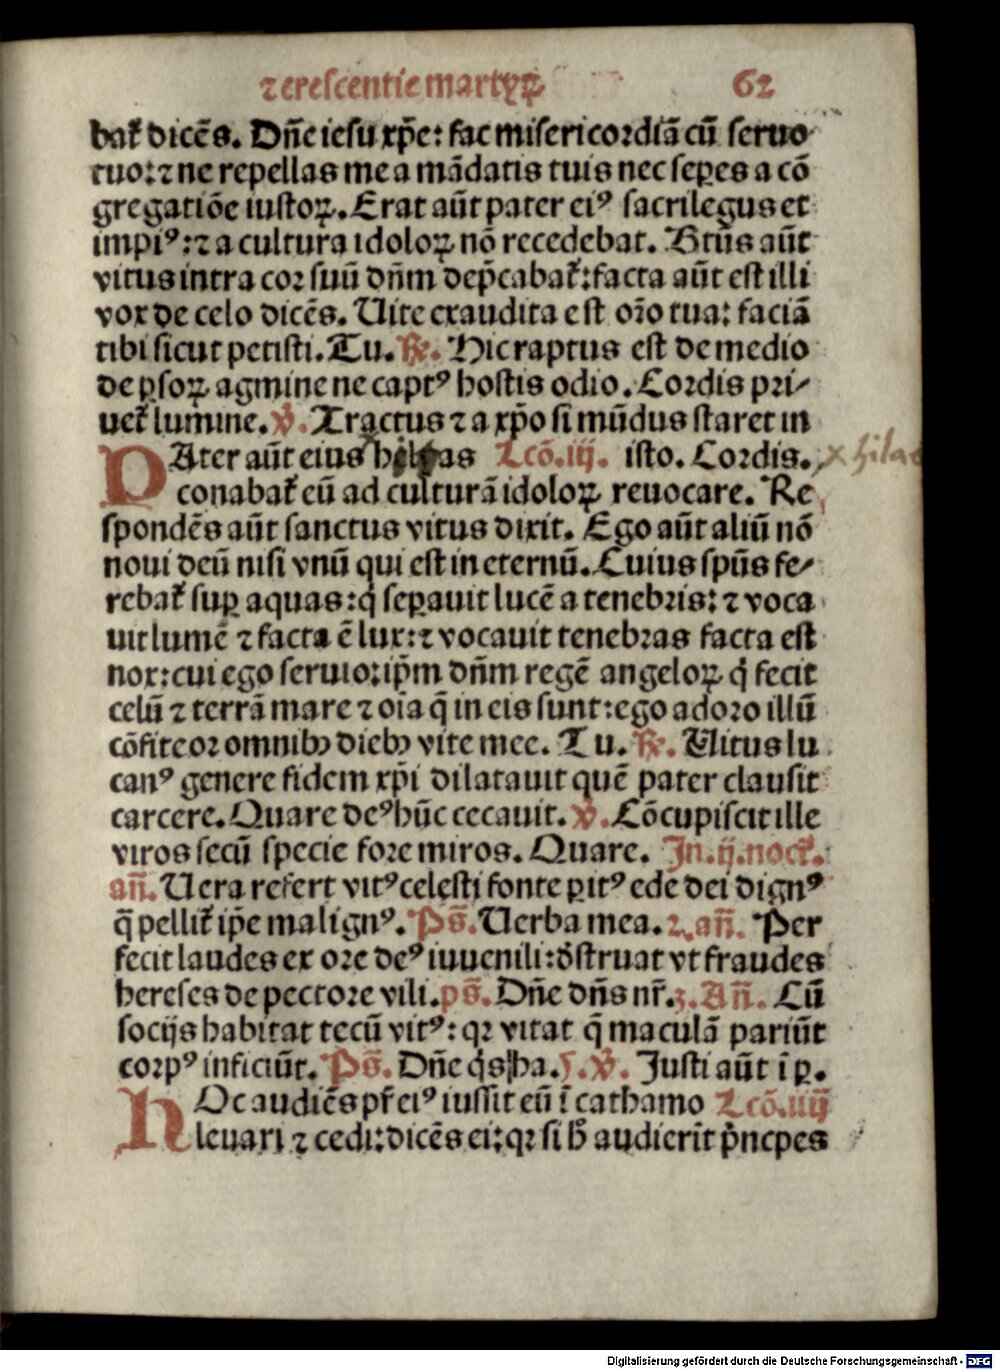 ⁊ crescentie martyꝝ 62
bat᷑ dicēs. Dñe iesu xp̄e: fac misericordiā cū seruo
tuo: ⁊ ne repellas me a mādatis tuis nec seꝑes a cō
gregatiōe iustoꝝ. Erat aūt pater eiꝰ sacrilegus et
impiꝰ: ⁊ a cultura idoloꝝ nō recedebat. Btūs aūt
vitus intra cor suū dn̄m dep̄cabat᷑: facta aūt est illi
vox de celo dicēs. Uite exaudita est or̄o tua: faciā
tibi sicut petisti. Tu. ℟. Hic raptus est de medio
de ꝑsoꝝ agmine ne captꝰ hostis odio. Cordis pri⸗
uet᷑ lumine. ℣. Tractus ⁊ a xp̄o si mūdus staret in
PAter aūt eius hylas Lcō.iij. isto. Cordis. x hilas
conabat᷑ eū ad culturā idoloꝝ reuocare. Re
spondēs aūt sanctus vitus dixit. Ego aūt aliū nō
noui deū nisi vnū qui est in eternū. Cuius sp̄us fe⸗
rebat᷑ suꝑ aquas: q̇ seꝑauit lucē a tenebris: ⁊ voca
uit lumē ⁊ facta ē lux: ⁊ vocauit tenebras facta est
nox: cui ego seruio: ip̄m dn̄m regē angeloꝝ q̇ fecit
celū ⁊ terrā mare ⁊ oīa q̄ in eis sunt: ego adoro illū
cōfiteor omnibꝫ diebꝫ vite mee. Tu. ℟. Uitus lu
canꝰ genere fidem xp̄i dilatauit quē pater clausit
carcere. Quare deꝰ hūc cecauit. ℣. Cōcupiscit ille
viros secū specie fore miros. Quare. In .ij. noct᷑.
añ. Uera refert vitꝰ celesti fonte ꝑitꝰ ede dei dignꝰ
q̄ pellit᷑ ip̄e malignꝰ. Ps̄. Uerba mea. 2. añ. Per
fecit laudes ex ore deꝰ iuuenili: dr̄struat vt fraudes
hereses de pectore vili. ps̄. Dñe dn̄s nr̄. 3. Añ. Cū
socijs habitat tecū vitꝰ: qꝛ vitat q̄ maculā pariūt
corpꝰ inficiūt. Ps̄. Dñe q̇s ha. ℣. Justi aūt ī ꝑ.
HOc audiēs pr̄ eiꝰ iussit eū ī cathamo Lcō.iiij
leuari ⁊ cedi: dicēs ei: qꝛ si h̄ audierīt p̄ncpes